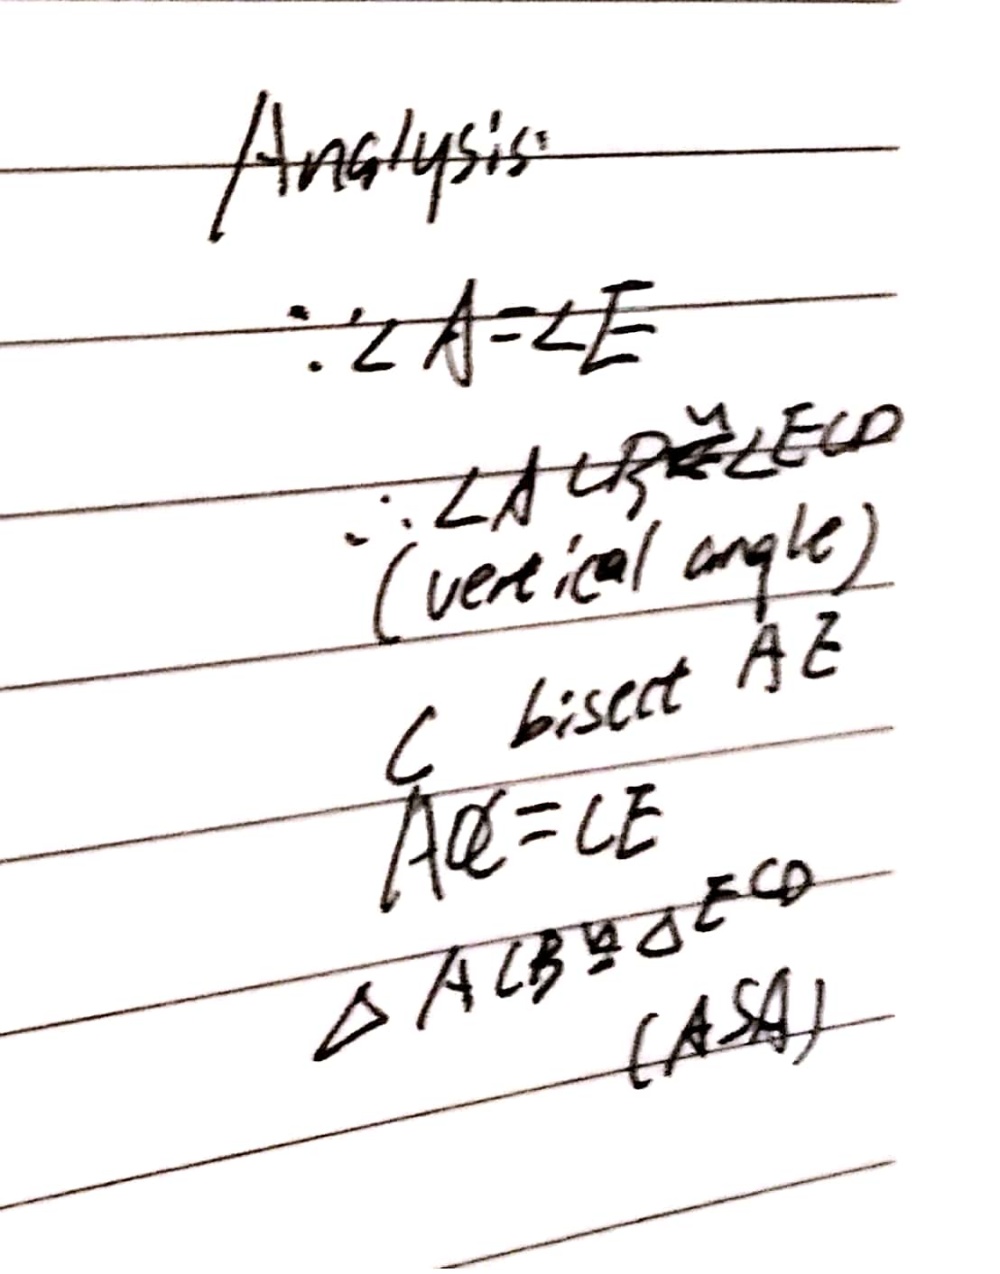 Analysis:
∵∠A=∠E
∴∠ACB≅∠ECD
(vertical angle)
C bisect AE
AC=CE
△ACB≅△ECD
(ASA)